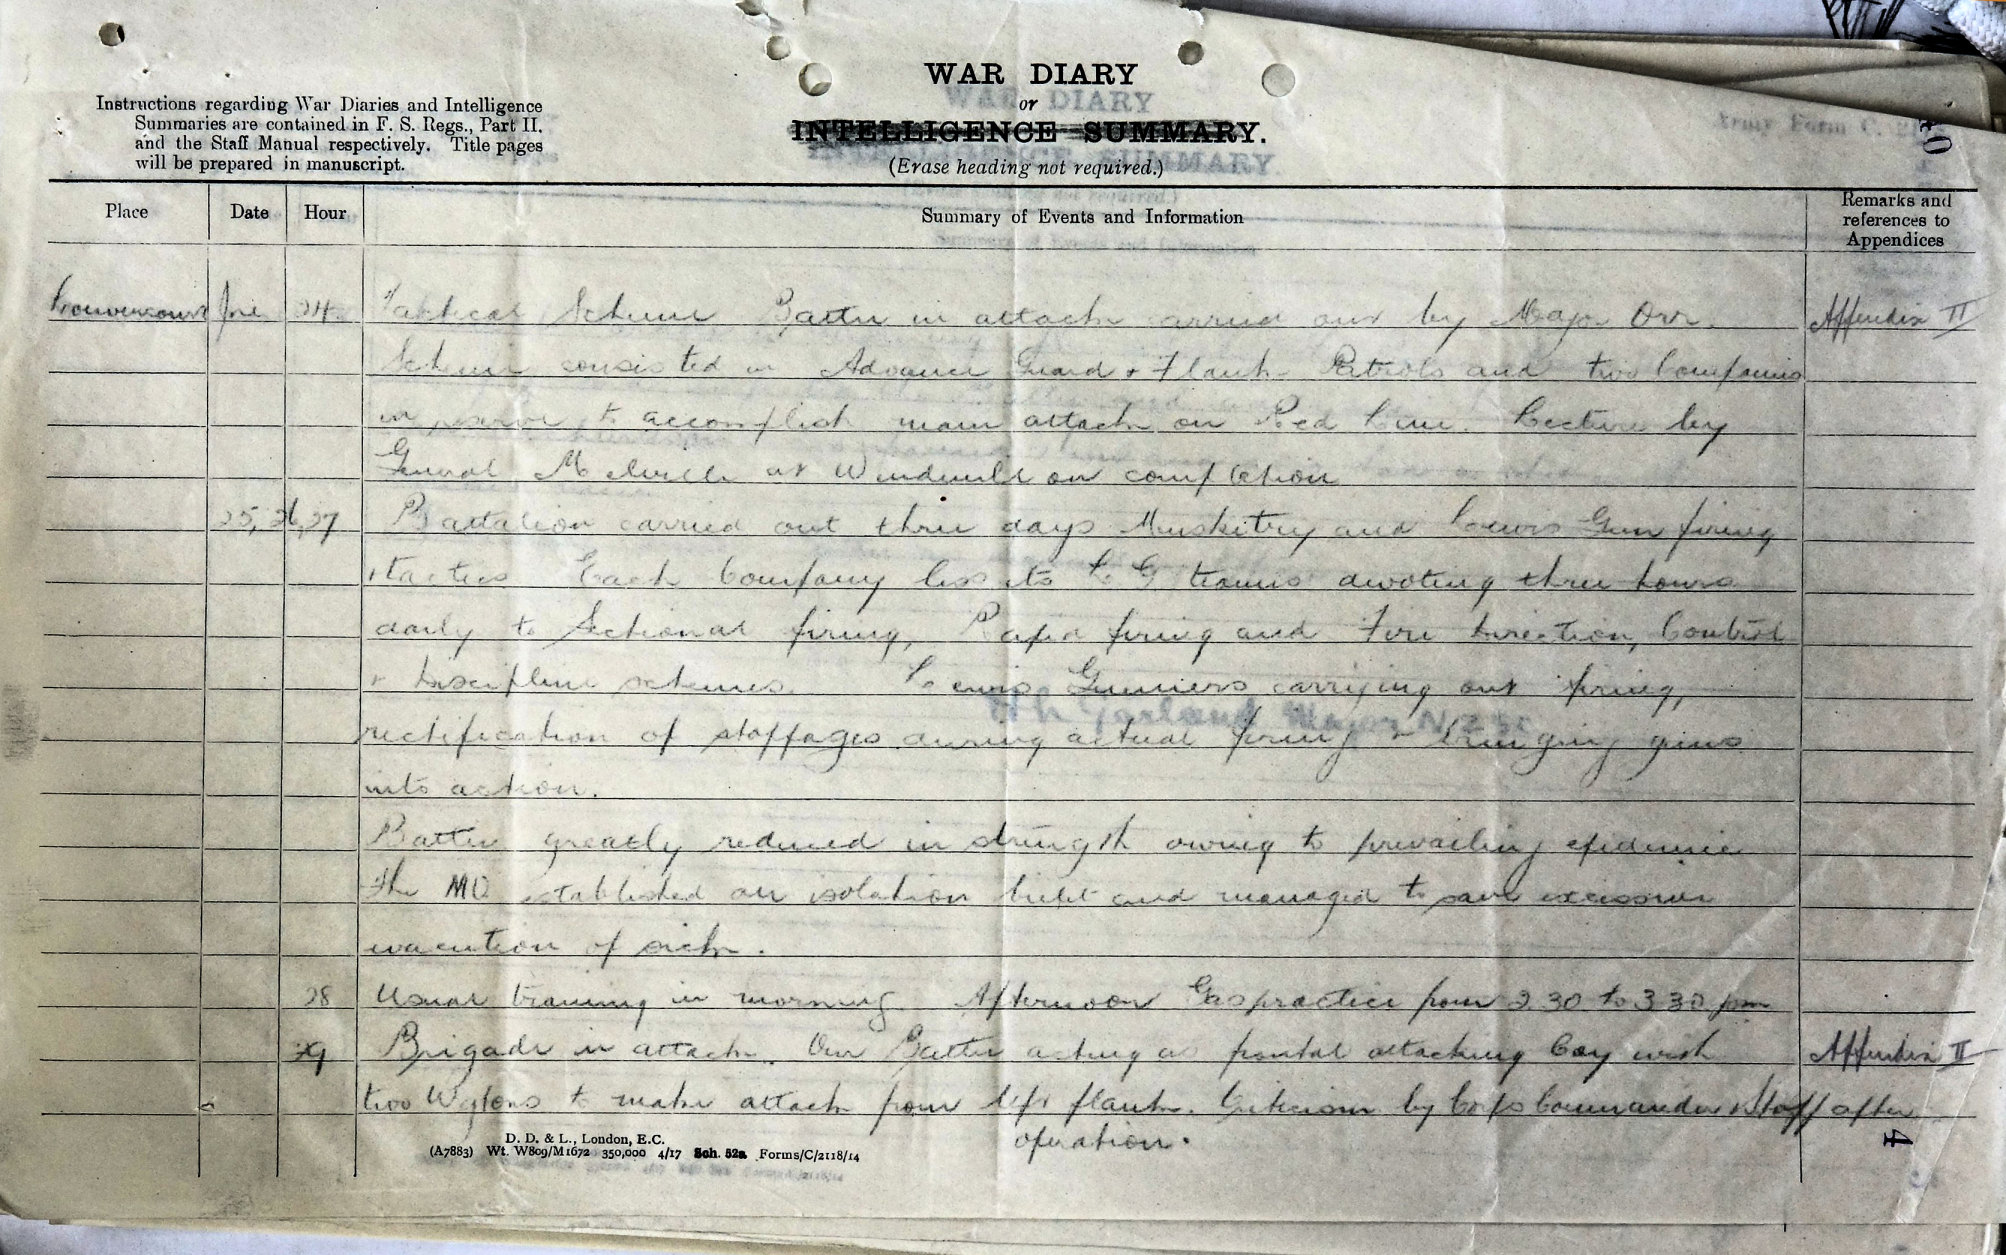 WAR DIARY
or
INTELLIGENCE SUMMARY.
(Erase heading not required.)
Instructions regarding War Diaries and Intelligence
Summaries are contained in F. S. Regs., Part II.
and the Staff Manual respectively. Title pages
will be prepared in manuscript.
Army Form C.
40
Place Date Hour Summary of Events and Information Remarks and references to Appendices
Louvencourt June 24 Tactical Scheme Battn in attack carried out by Major Orr. Appendix II
Scheme consisted in Advance Guard & Flank Patrols and two Companies
in reserve to accomplish main attack on Red Line. Lecture by
General Melvill at Windmill on completion
25, 26, 27 Battalion carried out three days Musketry and Lewis Gun firing
& Tactics Each Company less its L G teams devoting three hours
daily to Sectional firing, Rapid firing and Fire Direction, Control
& Discipline schemes. Lewis Gunners carrying out firing,
rectification of stoppages during actual firing & bringing guns
into action.
Battn greatly reduced in strength owing to prevailing epidemic
The MO established an isolation billet and managed to save excessive
evacution of sick.
28 Usual training in morning Afternoon Gas practice from 2.30 to 3.30 pm
29 Brigade in attack. Our Battn acting as frontal attacking Coy with Appendix II
two to make attack from left flank. Criticism by Corps Commander & Staff after
operation.
D. D. & L., London, E.C.
(A7883) Wt. W809/M1672 350,000 4/17 Sch. 52a Forms/C/2118/14
4